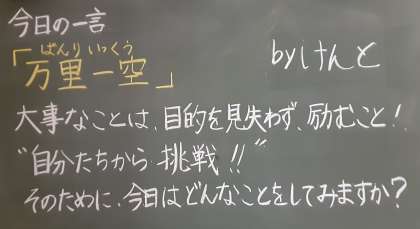 今日の一言
ばんり いっくう
「万里一空」 byけんと
大事なことは、目的を見失わず、励むこと！
"自分たちから挑戦!!"
そのために、今日はどんなことをしてみますか？